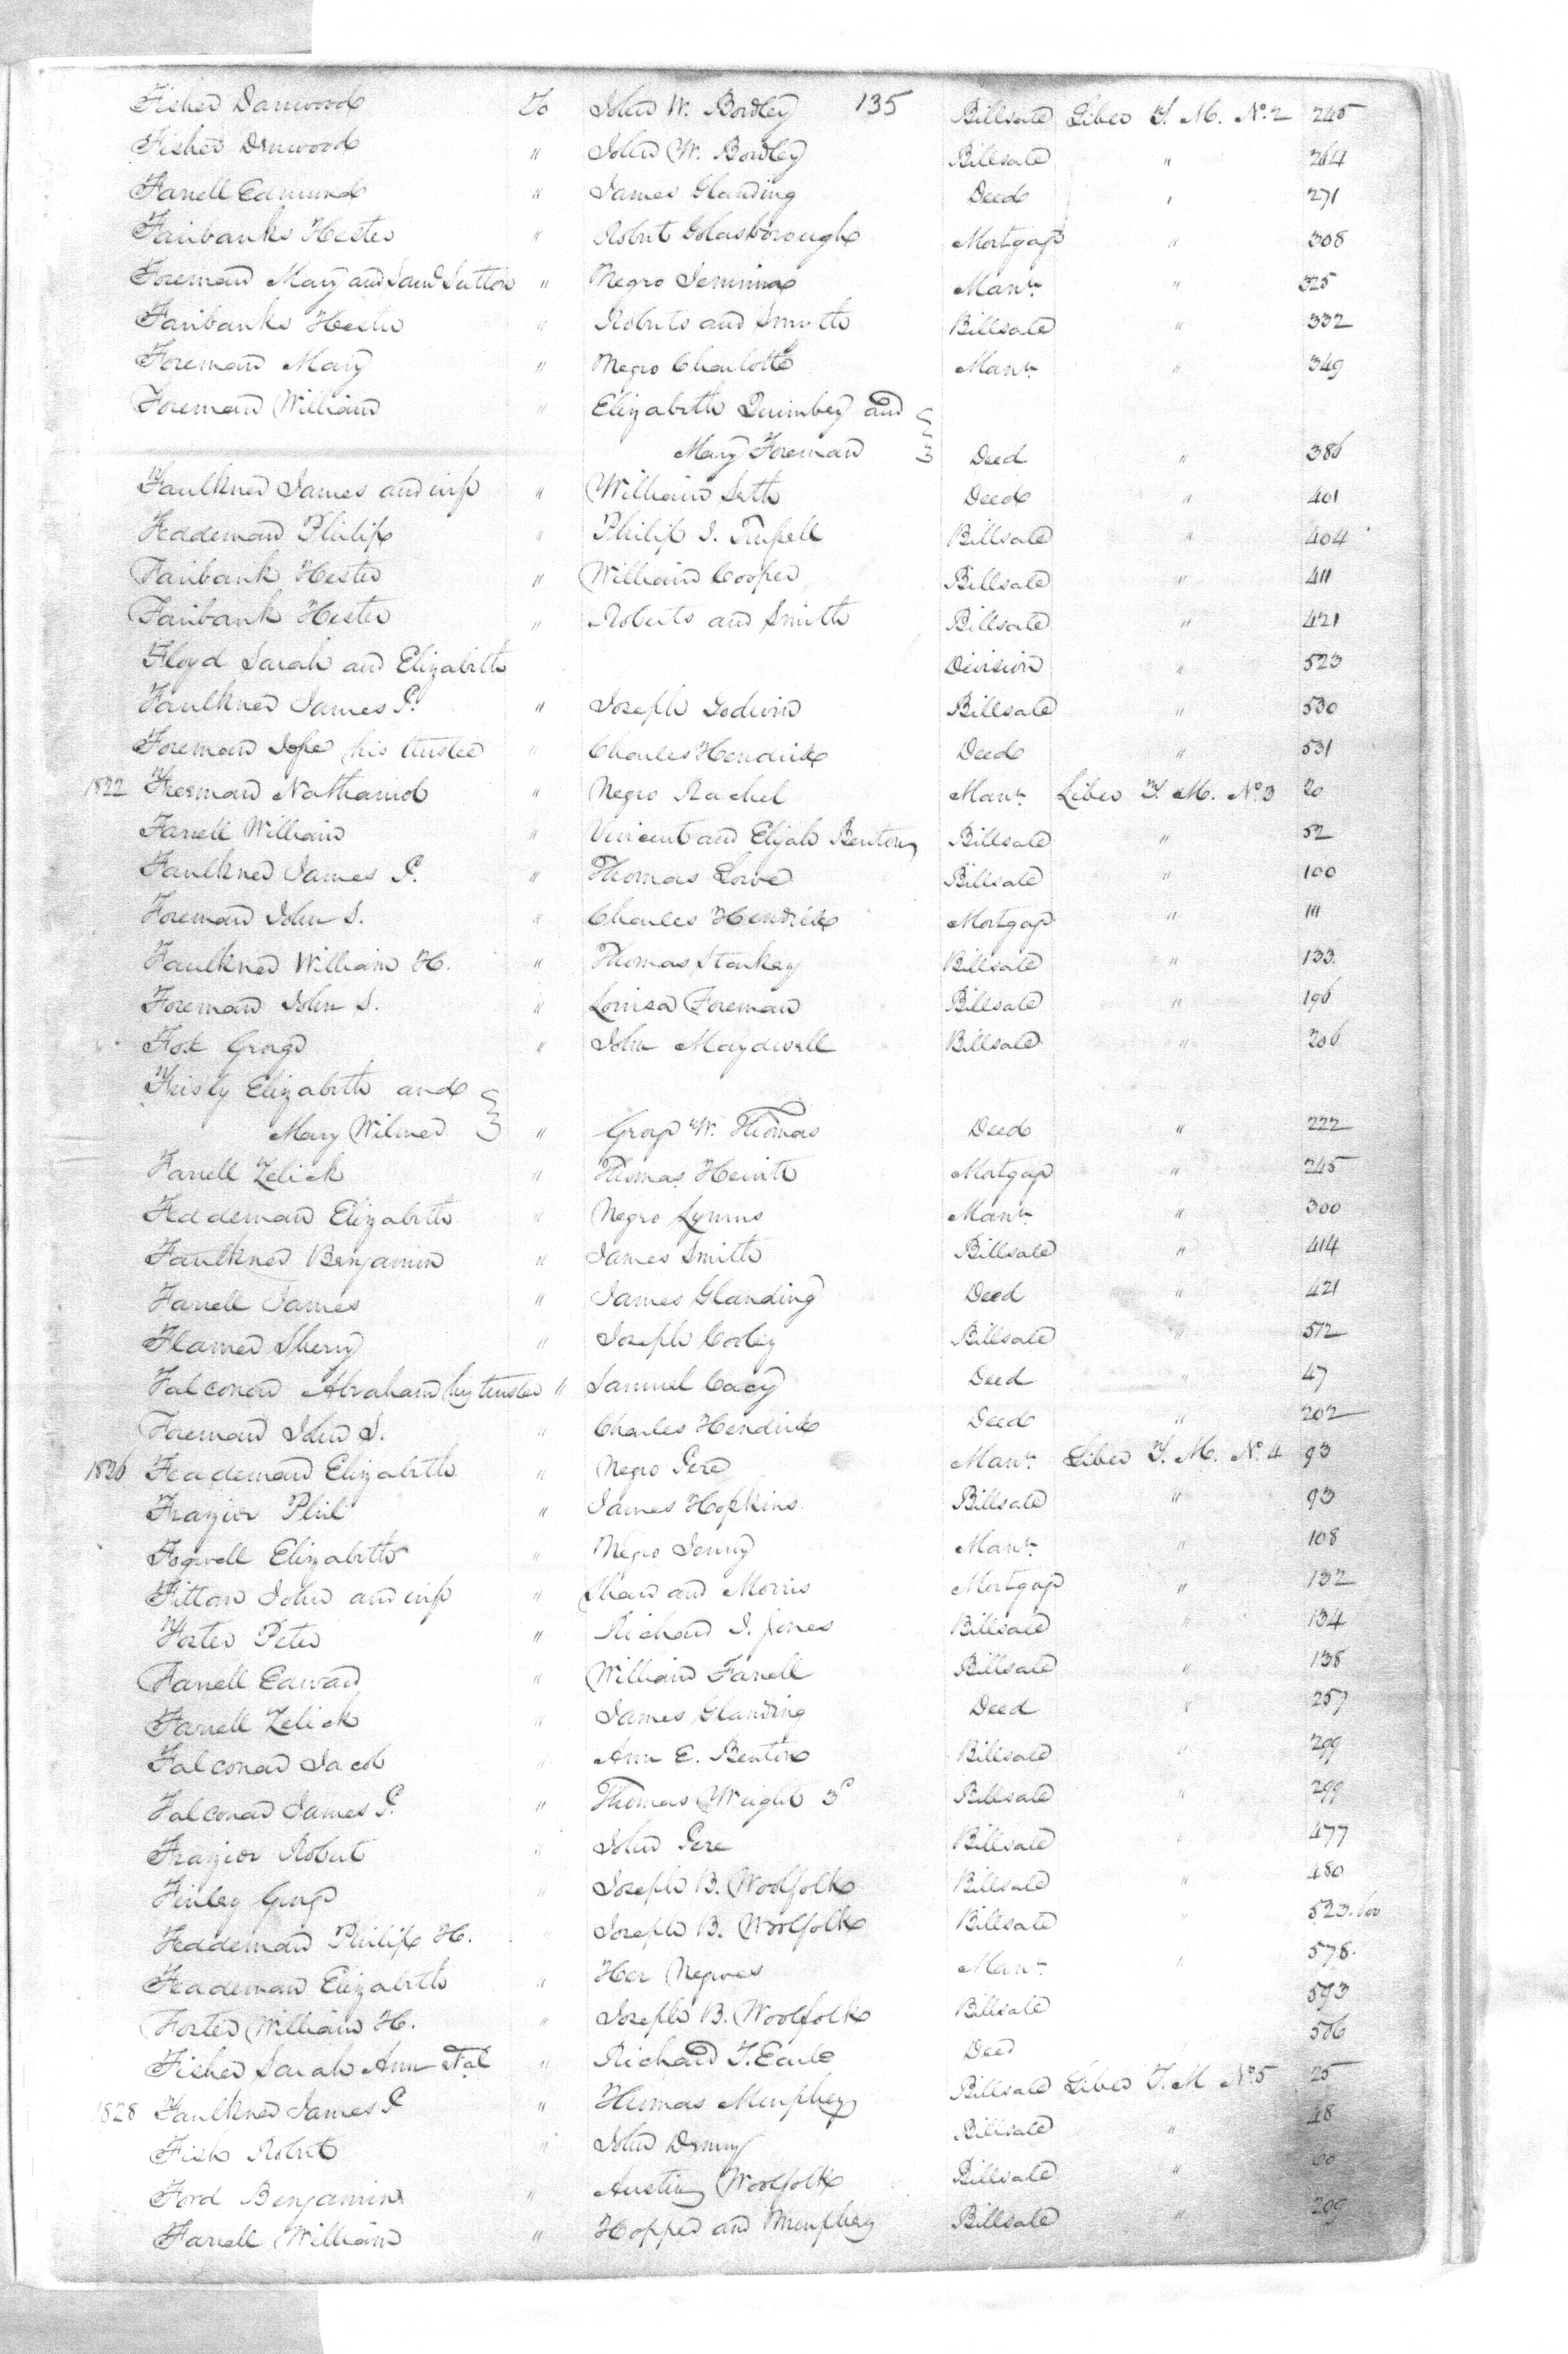 Fisher Danwood To John W. Bordley 135 Billsale Liber T. M. No. 2 245
Fisher Denwood " John W. Bordley Billsale " 264
Farrell Edmund " James Glanding Deed " 271
Fairbanks Hester " Robert Goldsborough Mortgage " 308
Foreman Mary and Saml Sutton " Negro Jemima Mann 325
Fairbanks Hester " Roberts and Smith Billsale " 332
Foreman Mary " Negro Charlotte Mann " 349
Foreman William " Elizabeth Quimbey and
Mary Foreman Deed " 386
Faulkner James and wife " William Seth Deed " 401
Feddeman Philip " Philip I. Russell Billsale " 404
Fairbank Hester " William Cooper Billsale " 411
Fairbank Hester " Roberts and Smith Billsale " 421
Floyd Sarah and Elizabeth Division " 523
Faulkner James P. " Joseph Godwin Billsale " 530
Foreman his trustee " Charles Hendrix Deed " 531
1822 Freeman Nathaniel " Negro Rachel Mann Liber T. M. No. 3 20
Farrell William " Vincent and Elijah Benton Billsale " 52
Faulkner James P. " Thomas Lowe Billsale " 100
Foreman John S. " Charles Hendrix Mortgage " 111
Faulkner William H. " Thomas Starkey Billsale " 133
Foreman John S. " Louisa Foreman Billsale " 196
Fox George " John Maydwell Billsale " 206
Frisby Elizabeth and
Mary Wilmer " George W. Thomas Deed " 222
Farrell Zelick " Thomas Hewitt Mortgage " 245
Feddeman Elizabeth " Negro Mann " 300
Faulkner Benjamin " James Smith Billsale " 414
Farrell James " James Glanding Deed " 421
Flamer Sherry " Joseph Billsale " 512
Falconer Abraham his trustee " Samuel Cacy Deed " 47
Foreman John S. " Charles Hendrix Deed " 202
1826 Feddeman Elizabeth " Negro Pere Mann Liber T. M. No. 4 93
Frazier Phil " James Hopkins Billsale " 93
Fogwell Elizabeth " Negro Jenny Mann " 108
Fitton John and wife " Shaw and Morris Mortgage " 132
Foster Peter " Richard I. Jones Billsale " 134
Farrell Edward " William Farrell Billsale " 138
Farrell Zelick " James Glanding Deed " 257
Falconer Jacob " Ann E. Benton Billsale " 299
Falconer James P. " Thomas Wright 3d Billsale " 299
Frazier Robert " John Pere Billsale " 477
Finley George " Joseph B. Woolfolk Billsale " 480
Feddeman Philip H. " Joseph B. Woolfolk Billsale " 523
Feddeman Elizabeth " Her Negroes Mann " 578
Foster William H. " Joseph B. Woolfolk Billsale 593
Fisher Sarah Ann " Richard T. Earle Deed 506
1828 Faulkner James P " Thomas Murphey Billsale Liber T. M No. 5 25
Fish Robert " John Denny Billsale " 48
Ford Benjamin " Austin Woolfolk Billsale " 60
Farrell William " Hopper and Murphey Billsale " 209